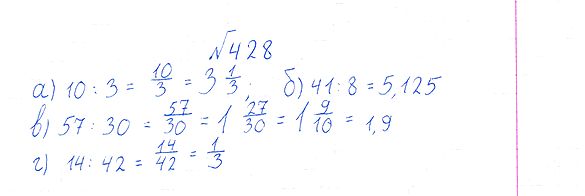 №428
а) 10 : 3 = 10/3 = 3 1/3; б) 41 : 8 = 5,125
в) 57 : 30 = 57/30 = 1 27/30 = 1 9/10 = 1,9
г) 14 : 42 = 14/42 = 1/3